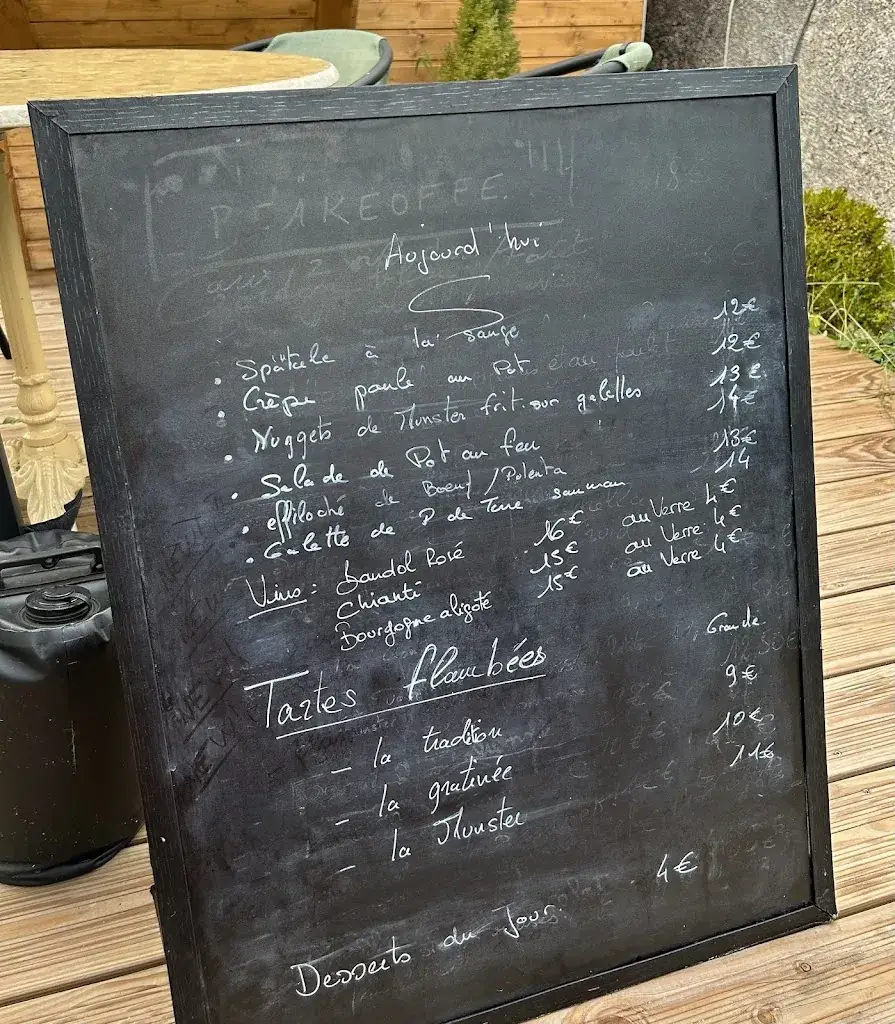 PFAKEOFFE
Aujourd'hui
• Spätzle à la sauge 12€
• Crêpe poule au Pot 12€
• Nuggets de Munster frit. sur galettes 13€
14€
• Salade de Pot au feu 13€
• effiloché de Boeuf / Polenta 14
• Galette de P de Terre saumon
Vins : Bandol Rosé 16€ au Verre 4€
Chianti 15€ au Verre 4€
Bourgogne aligoté 15€ au Verre 4€
Tartes flambées Grande
- la tradition 9€
- la gratinée 10€
- la Munster 11€
Desserts du Jour. 4€